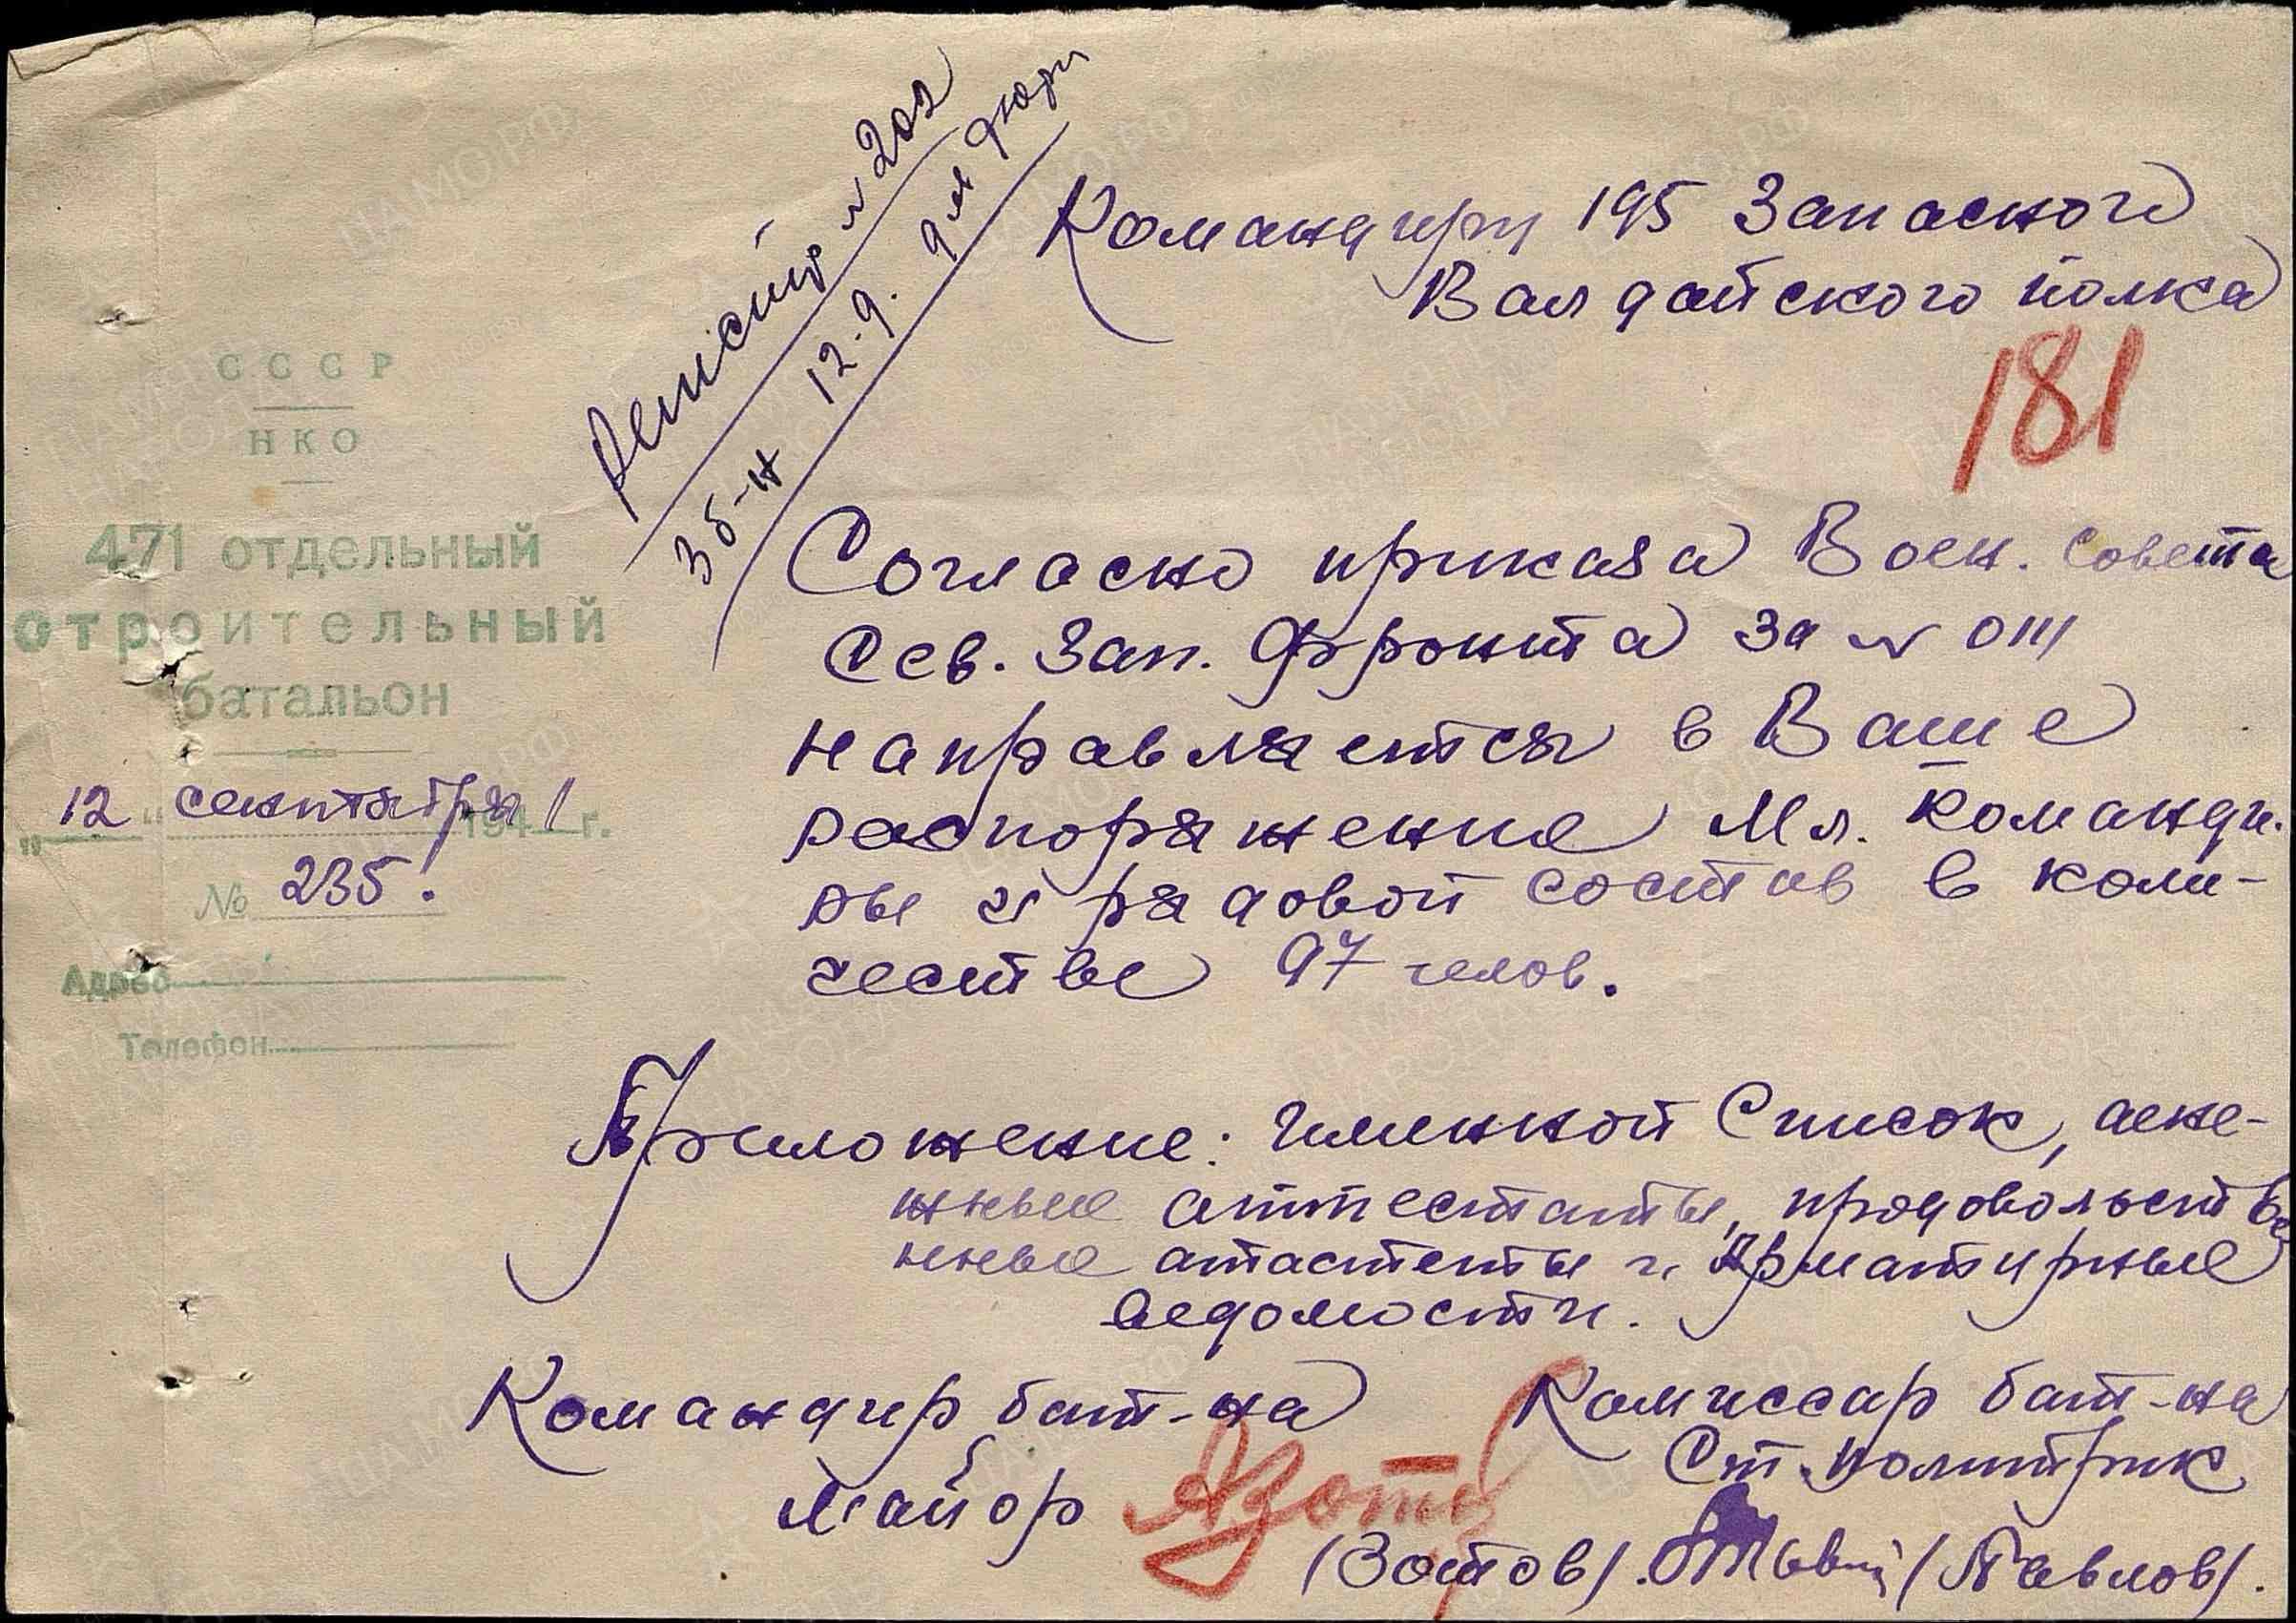 СССР
НКО
471 отдельный
строительный
батальон
"12" сентября 1941 г.
№ 235.
Адрес
Телефон
регистр № 202
зб-н 12.9.
Командиру 195 Запасного
Валдайского полка
181
Согласно приказа Воен. Совета
Сев. Зап. Фронта за № 0111
направляется в Ваше
распоряжение Мл. Команди-
ры и рядовой состав в коли-
честве 97 челов.
Приложение: Именной Список, дене-
жные аттестаты, продовольствен
ные атастеты и Арматурные
ведомости.
Командир бат-на
Майор
(Зотов).
Комиссар бат-на
Ст. политрик
(Павлов).